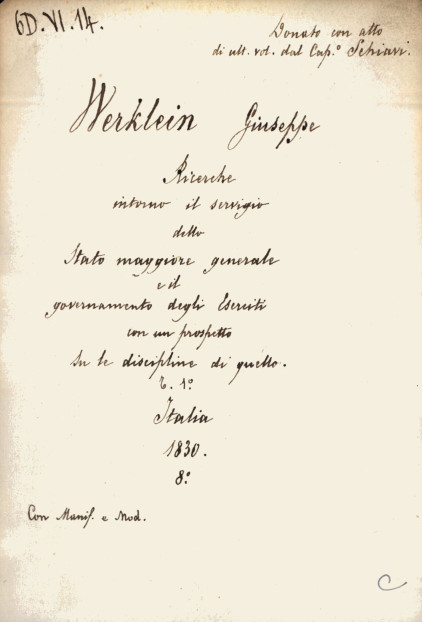 6D.VI.14.
Donato con atto
di ult. vol. dal Cap.º Schiavi.
Werklein Giuseppe
Ricerche
intorno il servigio
dello
Stato maggiore generale
e il
governamento degli Eserciti
con un prospetto
su le discipline di quello.
T. 1º
Italia
1830.
8º
Con Manif. e Mod.
C